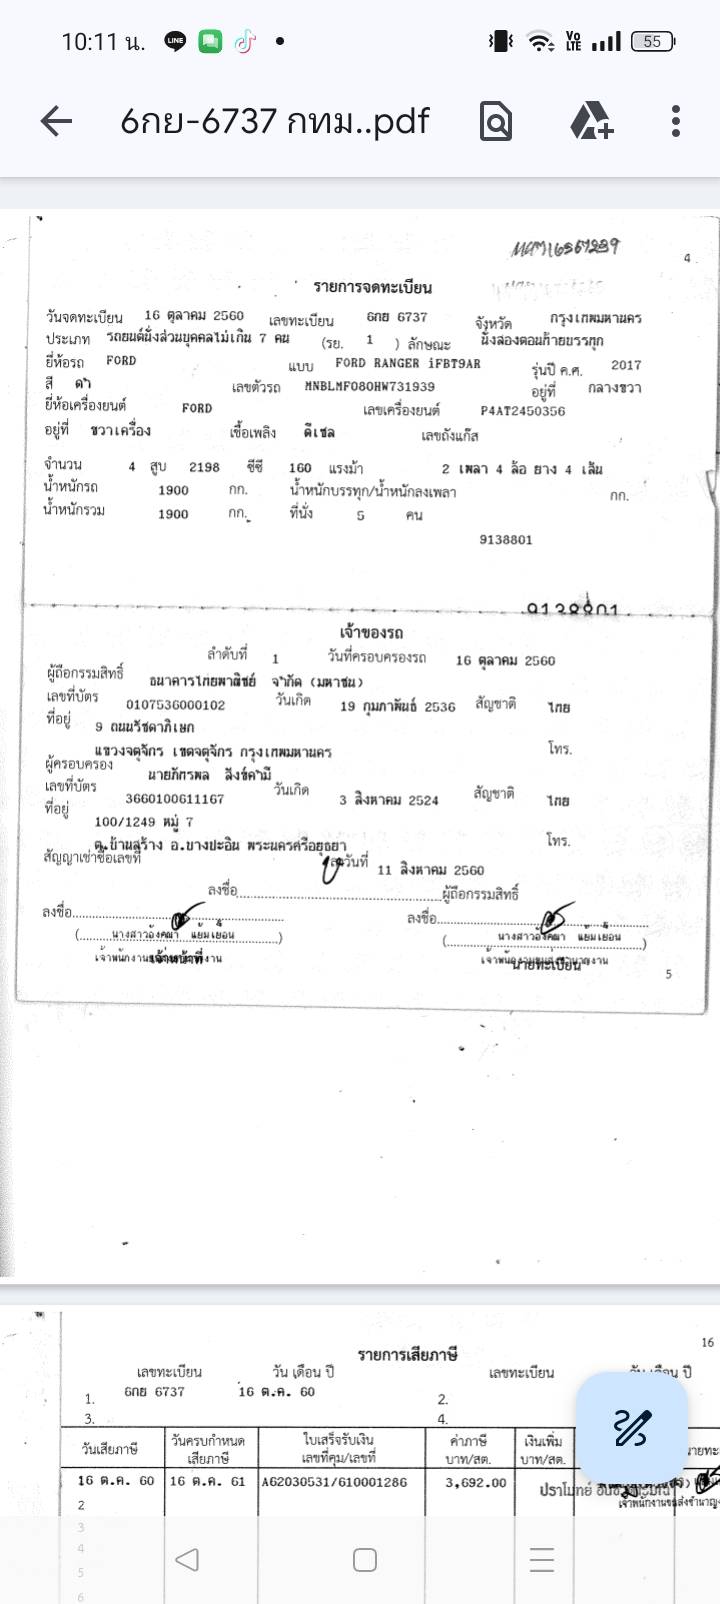 10:11 น. LINE Vo LTE 55
6กย-6737 กทม..pdf
4
รายการจดทะเบียน
วันจดทะเบียน 16 ตุลาคม 2560 เลขทะเบียน 6กย 6737 จังหวัด กรุงเทพมหานคร
ประเภท รถยนต์นั่งส่วนบุคคลไม่เกิน 7 คน (รย. 1 ) ลักษณะ นั่งสองตอนท้ายบรรทุก
ยี่ห้อรถ FORD แบบ FORD RANGER iFBT9AR รุ่นปี ค.ศ. 2017
สี ดำ เลขตัวรถ MNBLMF080HW731939 อยู่ที่ กลางขวา
ยี่ห้อเครื่องยนต์ FORD เลขเครื่องยนต์ P4AT2450356
อยู่ที่ ขวาเครื่อง เชื้อเพลิง ดีเซล เลขถังแก๊ส
จำนวน 4 สูบ 2198 ซีซี 160 แรงม้า 2 เพลา 4 ล้อ ยาง 4 เส้น
น้ำหนักรถ 1900 กก. น้ำหนักบรรทุก/น้ำหนักลงเพลา กก.
น้ำหนักรวม 1900 กก. ที่นั่ง 5 คน
9138801
9138801
เจ้าของรถ
ลำดับที่ 1 วันที่ครอบครองรถ 16 ตุลาคม 2560
ผู้ถือกรรมสิทธิ์ ธนาคารไทยพาณิชย์ จำกัด (มหาชน)
เลขที่บัตร 0107536000102 วันเกิด 19 กุมภาพันธ์ 2536 สัญชาติ ไทย
ที่อยู่ 9 ถนนรัชดาภิเษก
แขวงจตุจักร เขตจตุจักร กรุงเทพมหานคร โทร.
ผู้ครอบครอง นายภัทรพล สิงห์คำมี
เลขที่บัตร 3660100611167 วันเกิด 3 สิงหาคม 2524 สัญชาติ ไทย
ที่อยู่ 100/1249 หมู่ 7
ต.บ้านสร้าง อ.บางปะอิน พระนครศรีอยุธยา โทร.
สัญญาเช่าซื้อเลขที่ ลงวันที่ 11 สิงหาคม 2560
ลงชื่อ ผู้ถือกรรมสิทธิ์
ลงชื่อ ลงชื่อ
(นางสาวอังคณา แย้มเยื้อน) (นางสาวอังคณา แย้มเยื้อน)
เจ้าหน้าที่ นายทะเบียน
5
16
รายการเสียภาษี
เลขทะเบียน วัน เดือน ปี เลขทะเบียน วัน เดือน ปี
1. 6กย 6737 16 ต.ค. 60 2.
3. 4.
วันเสียภาษี วันครบกำหนดเสียภาษี ใบเสร็จรับเงิน เลขที่คุม/เลขที่ ค่าภาษี บาท/สต. เงินเพิ่ม บาท/สต.
16 ต.ค. 60 16 ต.ค. 61 A62030531/610001286 3,692.00
2
3
4
5
6